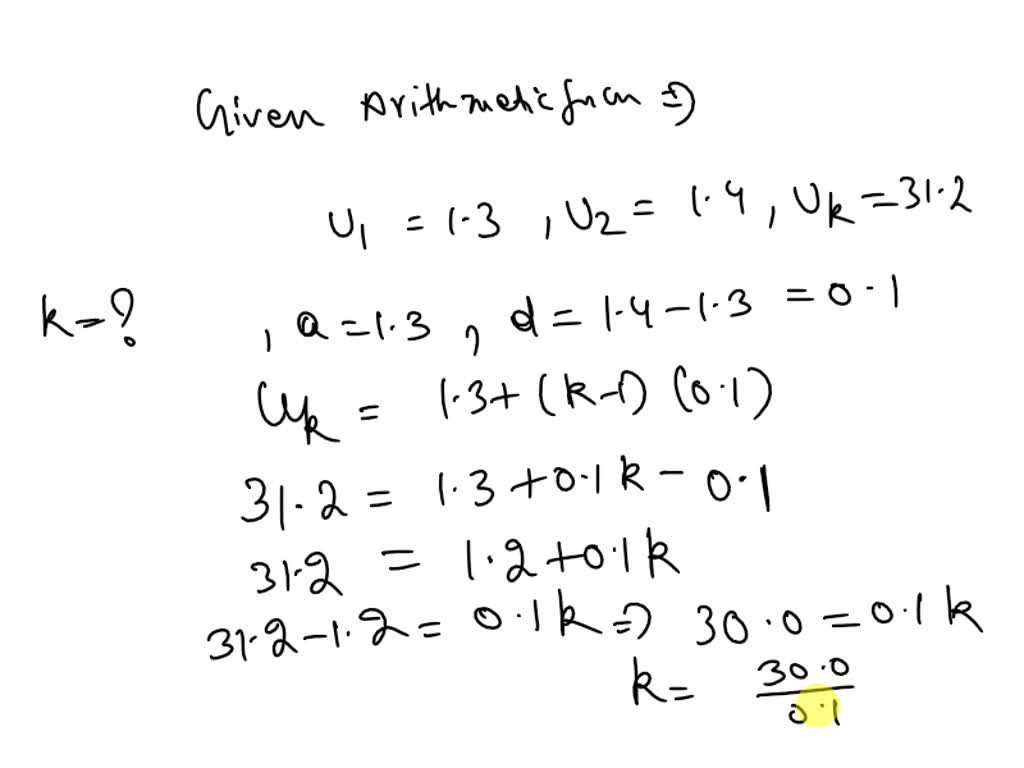 Given Arithmetic
U1 = 1.3 , U2 = 1.4 , Uk = 31.2
k = ?
, a = 1.3 , d = 1.4 - 1.3 = 0.1
Uk = 1.3 + (k-1) (0.1)
31.2 = 1.3 + 0.1k - 0.1
31.2 = 1.2 + 0.1k
31.2 - 1.2 = 0.1k => 30.0 = 0.1k
k = 30.0/0.1